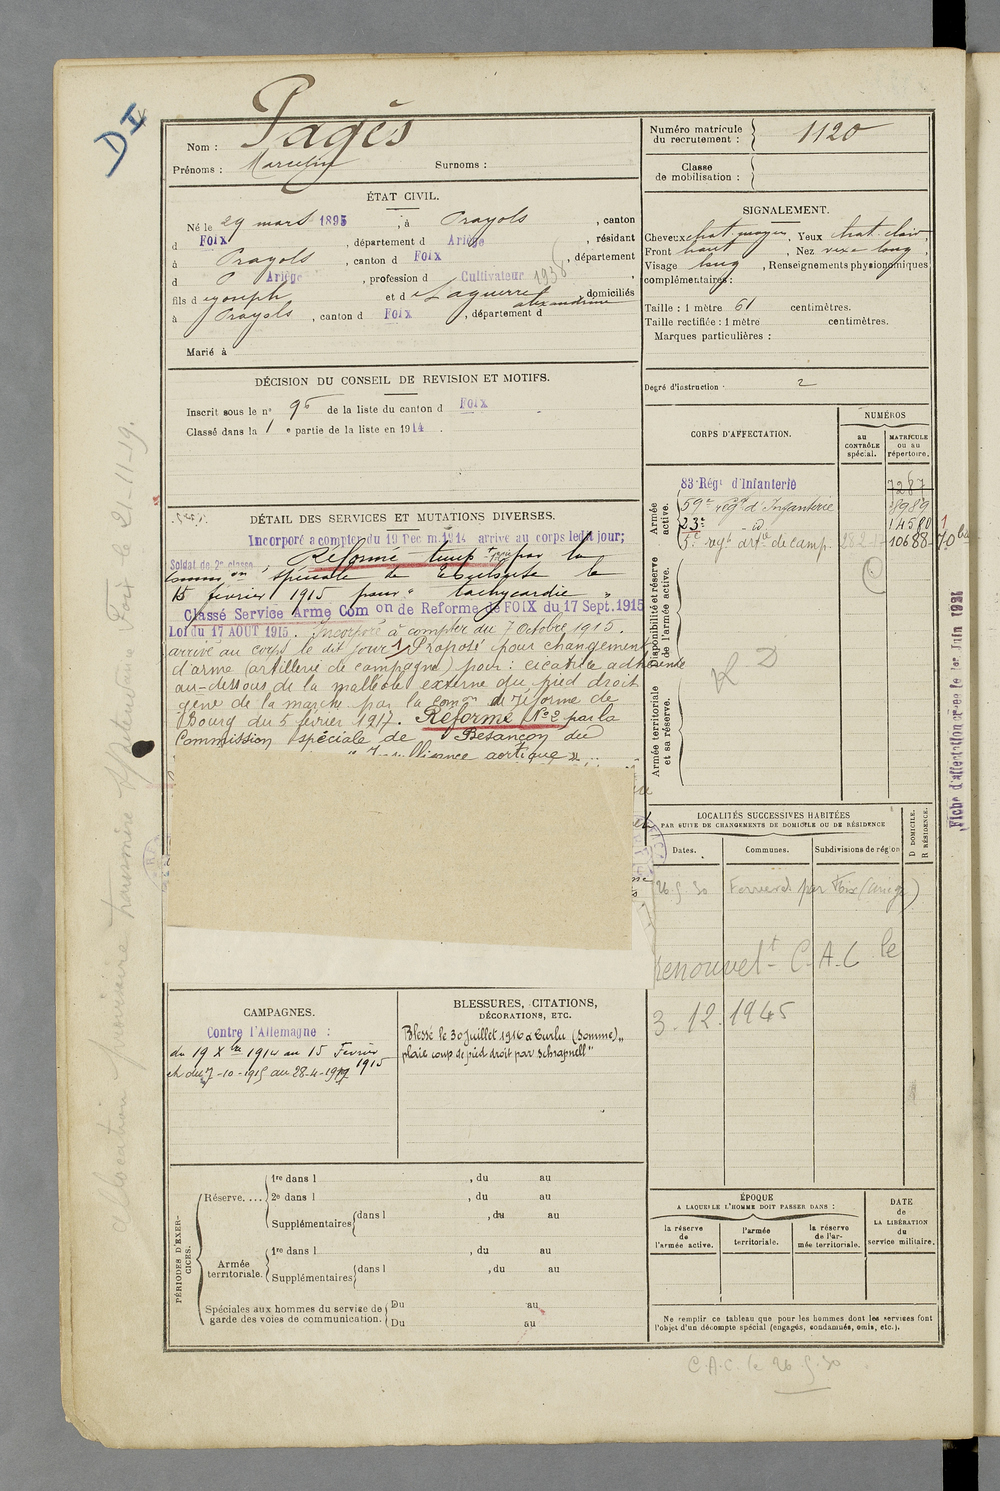 D I
Nom : Pagès
Prénoms : Marcelin Surnoms :
Numéro matricule du recrutement : 1120
Classe de mobilisation :
ÉTAT CIVIL.
Né le 29 mars 1895, à Prayols, canton
d Foix, département d Ariège, résidant
à Prayols, canton d Foix, département
d Ariège, profession d Cultivateur 1936
fils d e Joseph et d e Laguerre Alexandrine, domiciliés
à Prayols, canton d Foix, département d
Marié à
SIGNALEMENT.
Cheveux chat. moyen, Yeux chat. clair,
Front haut, Nez long,
Visage long, Renseignements physionomiques
complémentaires :
Taille : 1 mètre 61 centimètres.
Taille rectifiée : 1 mètre centimètres.
Marques particulières :
Degré d'instruction : 2
DÉCISION DU CONSEIL DE REVISION ET MOTIFS.
Inscrit sous le n° de la liste du canton d Foix
Classé dans la 1 e partie de la liste en 1914.
DÉTAIL DES SERVICES ET MUTATIONS DIVERSES.
Incorporé a compter du 19 Dec m. 1914 arrivé au corps ledit jour;
Soldat de 2e classe. Réformé temp re par la
comm on spéciale de Toulouse le
15 février 1915 pour " tachycardie "
Classé Service Armé Com on de Reforme de FOIX du 17 Sept. 1915
Loi du 17 AOUT 1915. Incorporé à compter du 7 Octobre 1915.
arrivé au corps le dit jour. Proposé pour changement
d'arme (artillerie de campagne) pour : cicatrice adhérente
au-dessous de la malléole externe du pied droit
gêne de la marche par la Comon de réforme de
Bourg du 5 février 1917. Réformé N° 2 par la
Commission spéciale de Besançon du
aortique »
CORPS D'AFFECTATION.
NUMÉROS
au CONTRÔLE spécial.
MATRICULE ou au répertoire.
Armée active.
83 Régt d'Infanterie 7287
59e Régt d'Infanterie 8989
23e - d° 14580
5e régt artie de camp. 10688
Disponibilité et réserve de l'armée active.
Armée territoriale et sa réserve.
LOCALITÉS SUCCESSIVES HABITÉES
PAR SUITE DE CHANGEMENTS DE DOMICILE OU DE RÉSIDENCE
Dates. Communes. Subdivisions de région
D DOMICILE.
R RÉSIDENCE.
26.5.30 Ferrières par Foix (Ariège)
Renouvelt C.A.C le
3.12.1945
CAMPAGNES.
Contre l'Allemagne :
du 19 Xbre 1914 au 15 Fevrier 1915
et du 7-10-1915 au 28-4-1917
BLESSURES, CITATIONS,
DÉCORATIONS, ETC.
Blessé le 30 Juillet 1916 à Curlu (Somme) „
plaie coup de pied droit par schrapnell "
PÉRIODES D'EXERCICES.
Réserve....
1re dans l , du au
2e dans l , du au
Supplémentaires dans l , du au
Armée territoriale.
1re dans l , du au
Supplémentaires dans l , du au
Spéciales aux hommes du service de garde des voies de communication.
Du au
Du au
ÉPOQUE
A LAQUELLE L'HOMME DOIT PASSER DANS :
la réserve de l'armée active.
l'armée territoriale.
la réserve de l'armée territoriale.
DATE de LA LIBÉRATION du service militaire.
Ne remplir ce tableau que pour les hommes dont les services font
l'objet d'un décompte spécial (engagés, condamnés, omis, etc.).
C.A.C. le 26.5.30
Fiche d'affectation créée le 1er Juin 1921
Foix le 21-11-19.